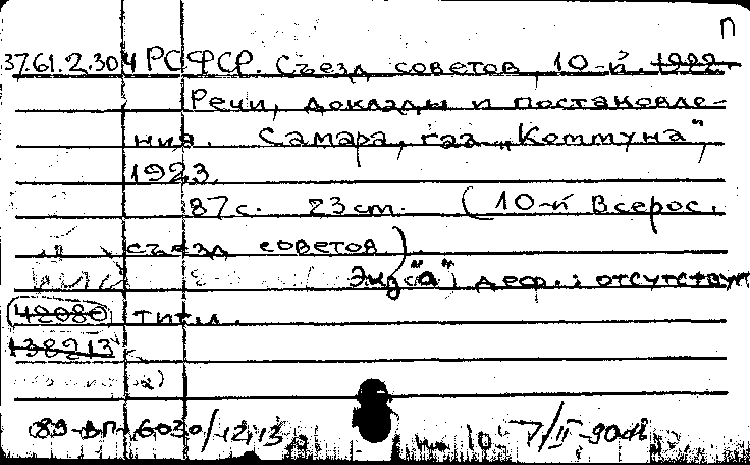 П
37.61.2.304 РСФСР. Съезд советов, 10-й. 1922.
Речи, доклады и постановле-
ния. Самара, газ. „Коммуна",
1923.
87 с. 23 см. (10-й Всерос.
съезд советов).
Экз. "а", деф.: отсутствует
42080 титл.
138213
89-ВП-6030/12,13